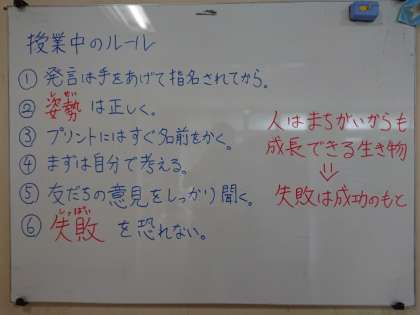 授業中のルール
① 発言は手をあげて指名されてから。
② 姿勢は正しく。
③ プリントにはすぐ名前をかく。
④ まずは自分で考える。
⑤ 友だちの意見をしっかり聞く。
⑥ 失敗を恐れない。
人はまちがいからも
成長できる生き物
⇓
失敗は成功のもと